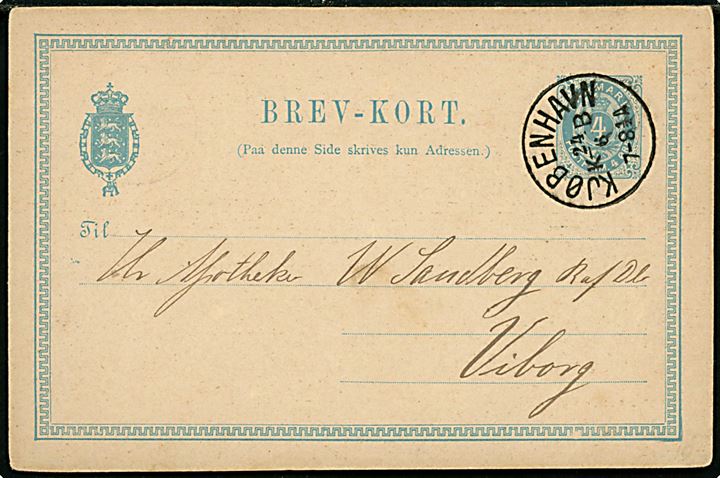 DANMARK
4
BREV-KORT.
(Paa denne Side skrives kun Adressen.)
KJØBENHAVN
K
24 9 B
7-8
Til
Hr Apotheker W Sandberg R af Dbr
Viborg